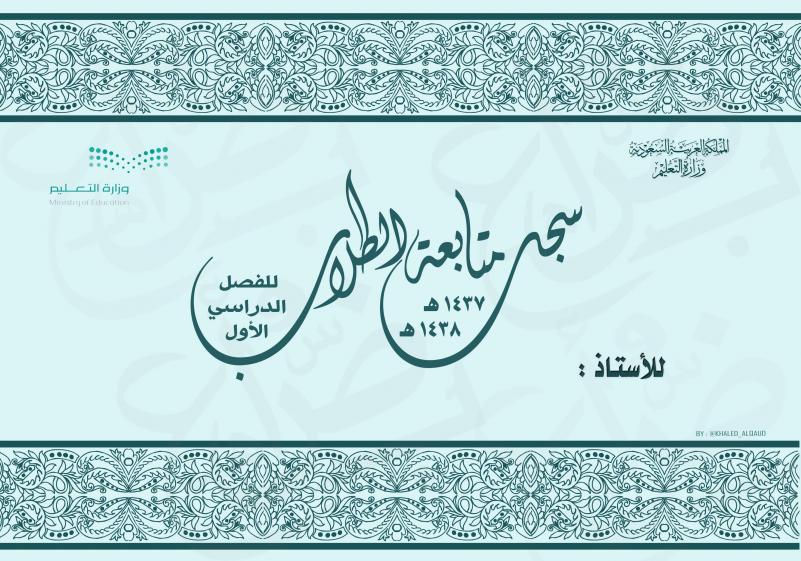 المملكة العربية السعودية
وزارة التعليم
وزارة التعـــليم
Ministry of Education
سجل متابعة الطلاب
١٤٣٧ هـ
١٤٣٨ هـ
للفصل
الدراسي
الأول
للأستاذ :
BY : @KHALED_ALQAUD